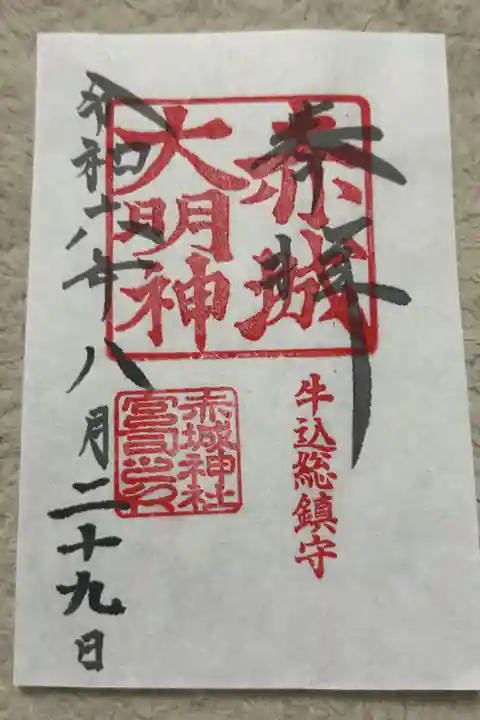 奉拝
赤城
大明神
牛込総鎮守
赤城神社
宮司之印
令和六年八月二十九日